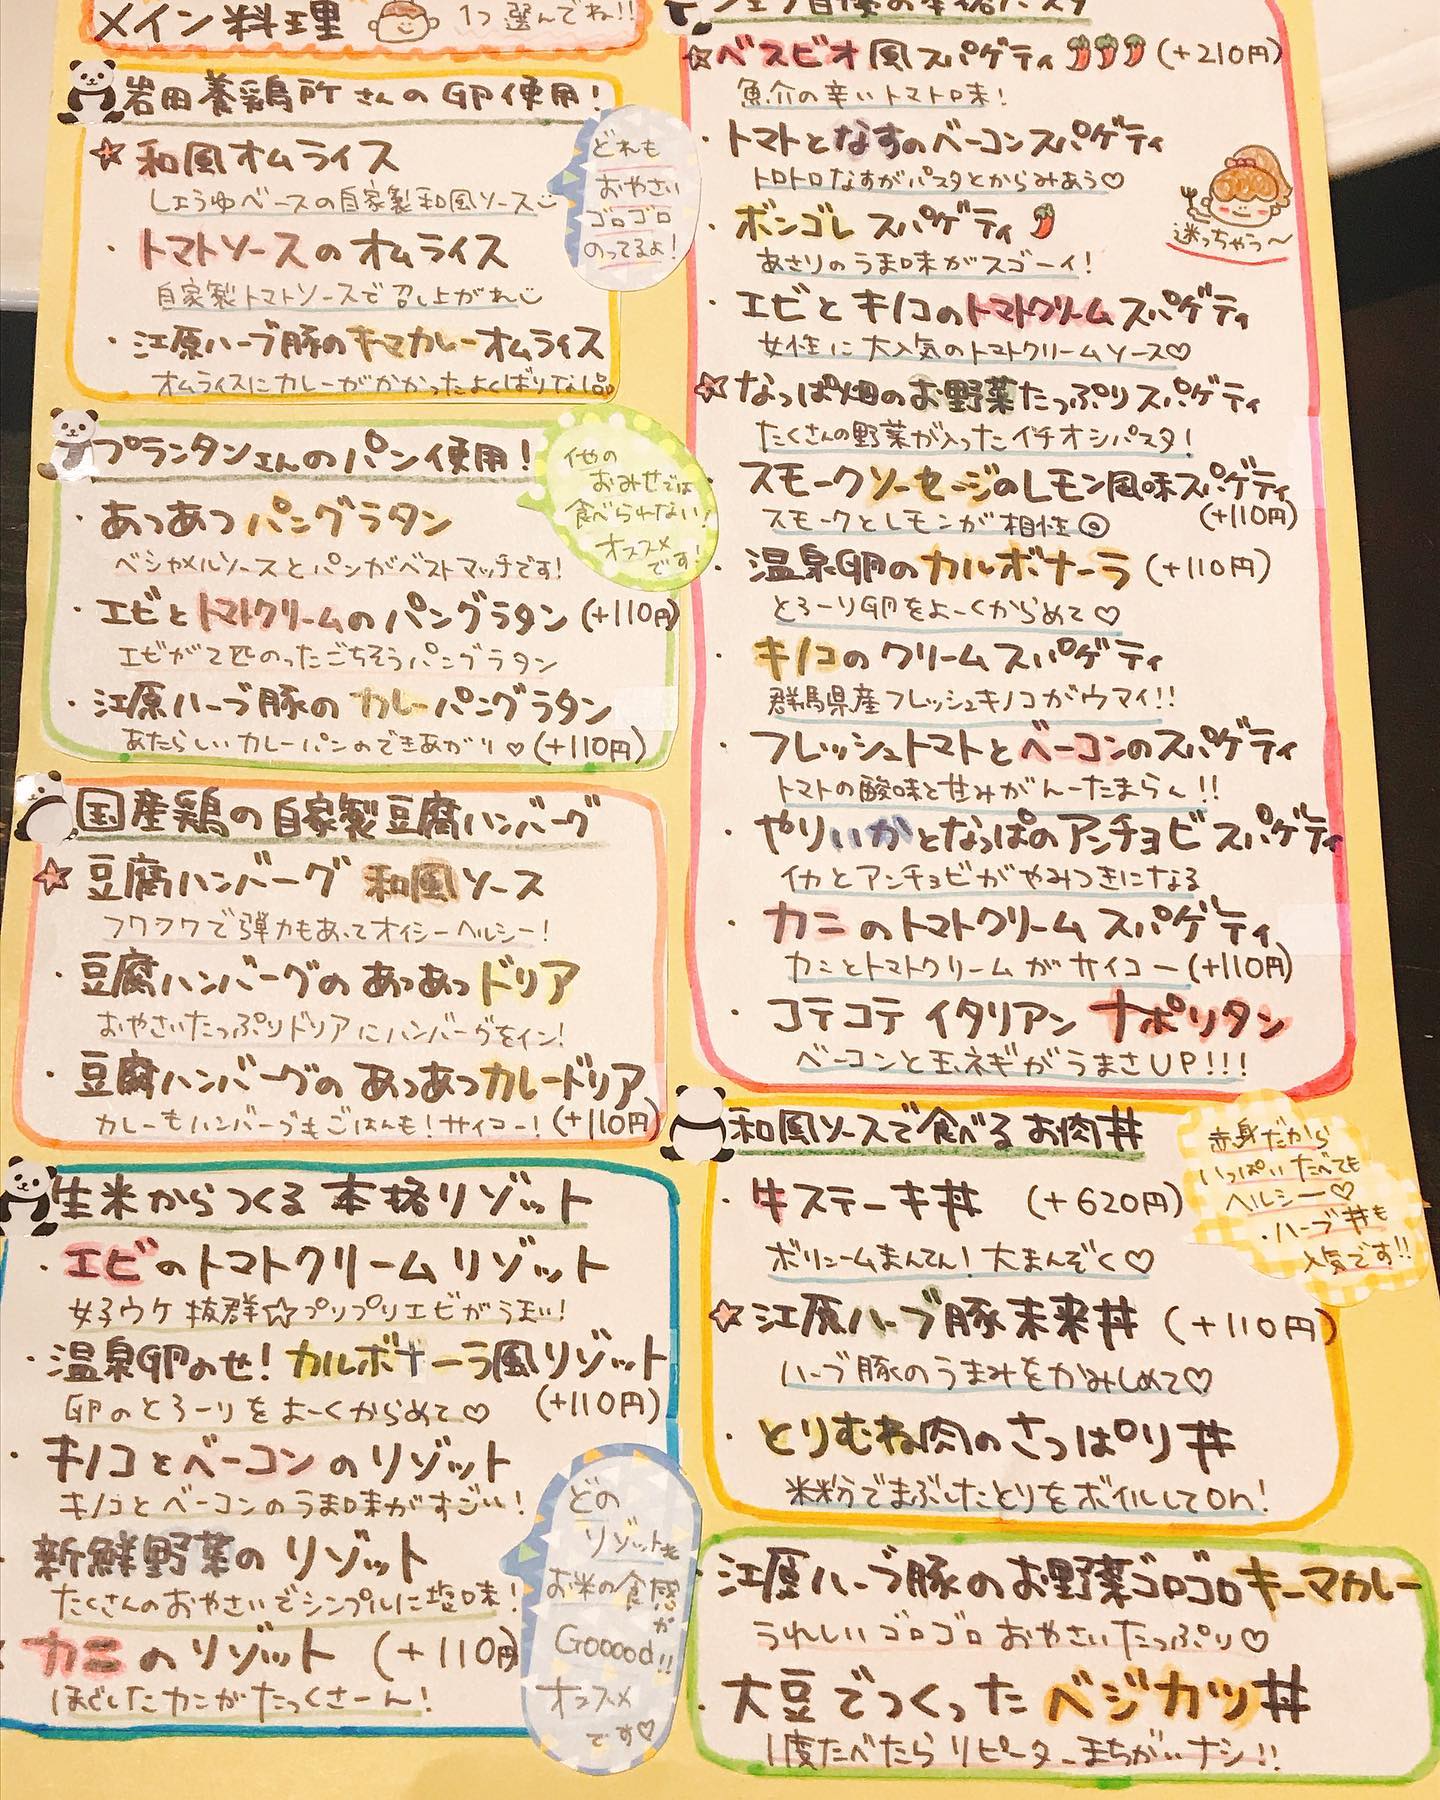 メイン料理 1つ選んでね!!
岩田養鶏所さんの卵使用!
☆和風オムライス
しょうゆベースの自家製和風ソース
・トマトソースのオムライス
自家製トマトソースで召し上がれ
・江原ハーブ豚のキーマカレーオムライス
オムライスにカレーがかかったよくばりな1品
どれも
おやさい
ゴロゴロ
のってるよ!
プランタンさんのパン使用!
・あつあつパングラタン
ベシャメルソースとパンがベストマッチです!
・エビとトマトクリームのパングラタン(+110円)
エビが2匹のったごちそうパングラタン
・江原ハーブ豚のカレーパングラタン
あたらしいカレーパンのできあがり♡(+110円)
他の
おみせでは
食べられない!
オススメ
です!
国産鶏の自家製豆腐ハンバーグ
☆豆腐ハンバーグ 和風ソース
フワフワで弾力もあってオイシーヘルシー!
・豆腐ハンバーグのあつあつドリア
おやさいたっぷりドリアにハンバーグをイン!
・豆腐ハンバーグのあつあつカレードリア
カレーもハンバーグもごはんも!サイコー!(+110円)
生米からつくる本格リゾット
・エビのトマトクリームリゾット
女子ウケ抜群☆プリプリエビがうまい!
・温泉卵のせ!カルボナーラ風リゾット
卵のとろーりをよーくからめて♡ (+110円)
・キノコとベーコンのリゾット
キノコとベーコンのうま味がすごい!
・新鮮野菜のリゾット
たくさんのおやさいでシンプルに塩味!
☆カニのリゾット (+110円)
ほぐしたカニがたっくさーん!
どの
リゾットも
お米の食感
が
Gooood!!
オススメ
です♡
シェフ自慢の本格パスタ
☆ベスビオ風スパゲティ (+210円)
魚介の辛いトマト味!
・トマトとなすのベーコンスパゲティ
トロトロなすがパスタとからみあう♡
・ボンゴレスパゲティ
あさりのうま味がスゴーイ!
迷っちゃう〜
・エビとキノコのトマトクリームスパゲティ
女性に大人気のトマトクリームソース♡
☆なっぱ畑のお野菜たっぷりスパゲティ
たくさんの野菜が入ったイチオシパスタ!
・スモークソーセージのレモン風味スパゲティ
スモークとレモンが相性◎ (+110円)
・温泉卵のカルボナーラ (+110円)
とろーり卵をよーくからめて♡
・キノコのクリームスパゲティ
群馬県産フレッシュキノコがウマイ!!
・フレッシュトマトとベーコンのスパゲティ
トマトの酸味と甘みがんーたまらん!!
・やりいかとなっぱのアンチョビスパゲティ
イカとアンチョビがやみつきになる
・カニのトマトクリームスパゲティ
カニとトマトクリームがサイコー(+110円)
・コテコテイタリアンナポリタン
ベーコンと玉ネギがうまさUP!!!
和風ソースで食べるお肉丼
・牛ステーキ丼 (+620円)
ボリュームまんてん!大まんぞく♡
☆江原ハーブ豚未来丼 (+110円)
ハーブ豚のうまみをかみしめて♡
・とりむね肉のさっぱり丼
米粉でまぶしたとりをボイルしてOn!
赤身だから
いっぱいたべても
ヘルシー♡
・ハーブ丼も
人気です!!
・江原ハーブ豚のお野菜ゴロゴロキーマカレー
うれしいゴロゴロおやさいたっぷり♡
・大豆でつくったベジカツ丼
1度たべたらリピーターまちがいナシ!!